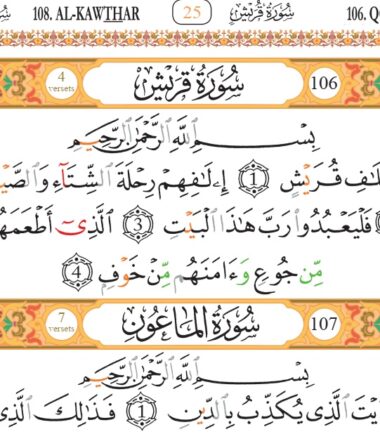 108. AL-KAWTHAR 25 سُورَةُ قُرَيْشٍ 106. Q
4 verses سُورَةُ قُرَيْشٍ 106
بِسْمِ ٱللَّهِ ٱلرَّحْمَٰنِ ٱلرَّحِيمِ
لَٰفِ قُرَيْشٍ 1 إِۦلَٰفِهِمْ رِحْلَةَ ٱلشِّتَآءِ وَٱلصَّيْ
فَلْيَعْبُدُوا۟ رَبَّ هَٰذَا ٱلْبَيْتِ 3 ٱلَّذِىٓ أَطْعَمَهُ
مِّن جُوعٍ وَءَامَنَهُم مِّنْ خَوْفٍۭ 4
7 verses سُورَةُ ٱلْمَاعُونِ 107
بِسْمِ ٱللَّهِ ٱلرَّحْمَٰنِ ٱلرَّحِيمِ
يْتَ ٱلَّذِى يُكَذِّبُ بِٱلدِّينِ 1 فَذَٰلِكَ ٱلَّذِى